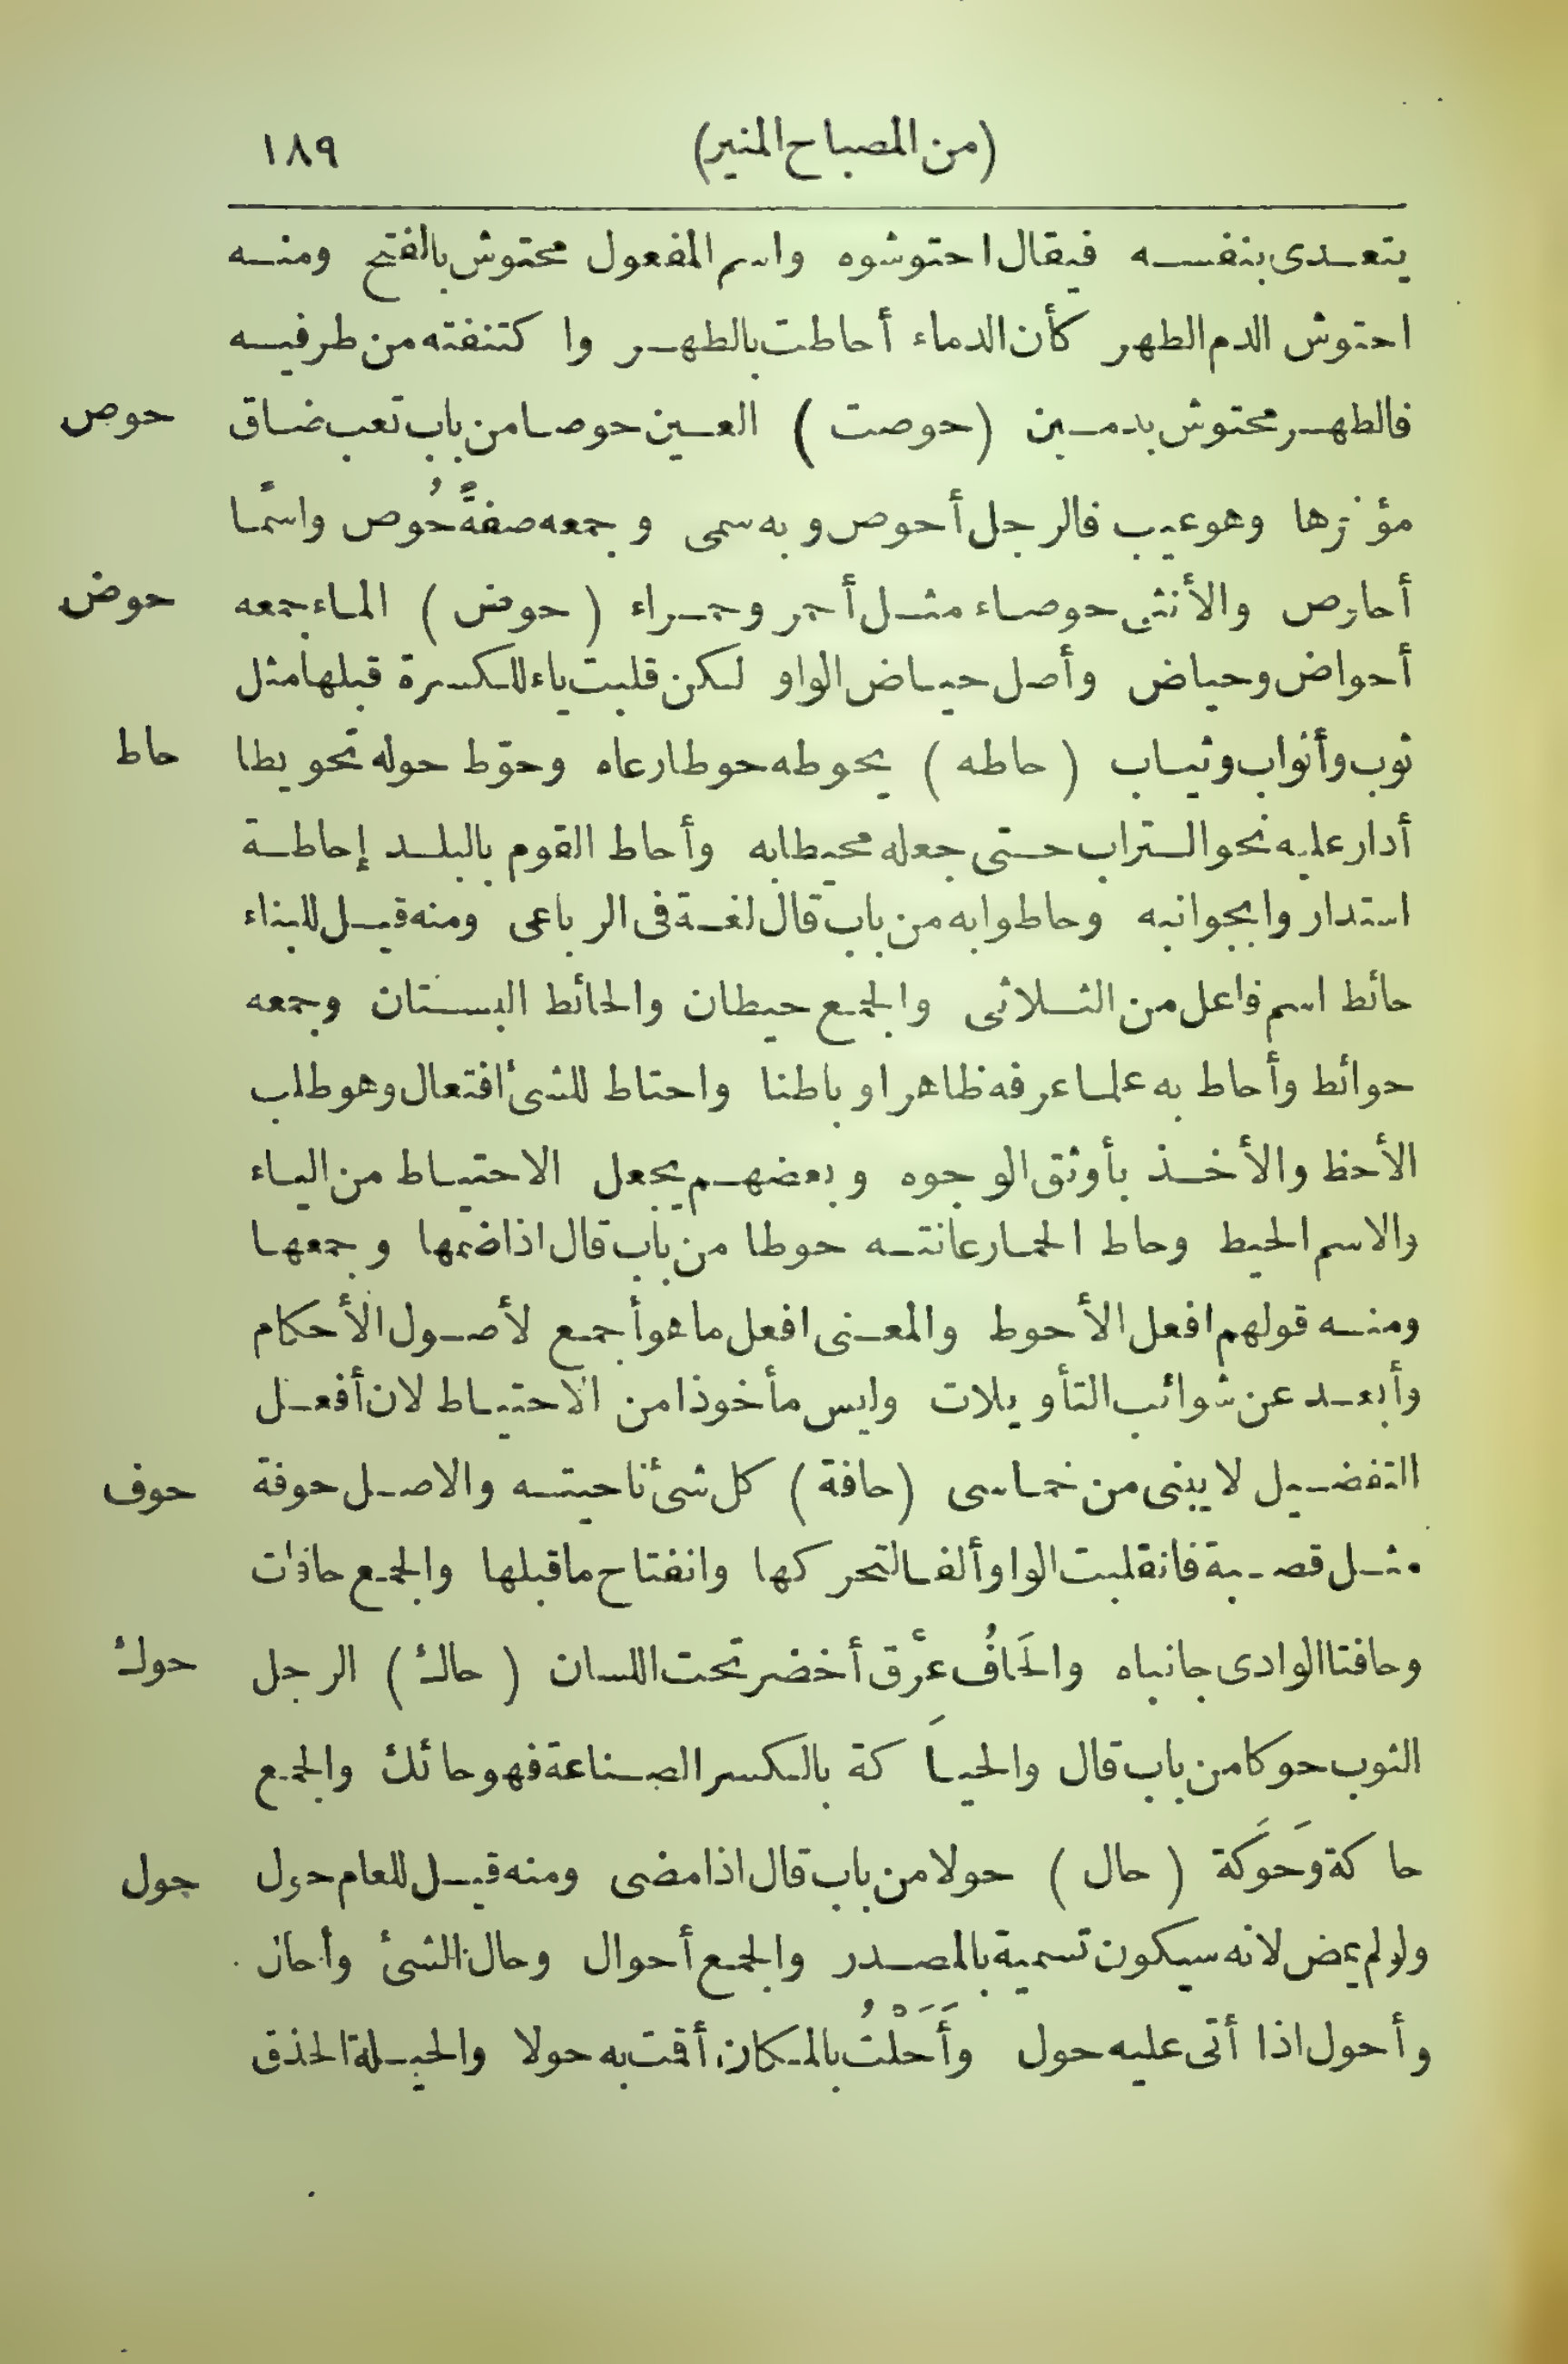 (من المصباح المنير) ١٨٩
يتعدى بنفسه فيقال احتوشوه واسم المفعول محتوش بالفتح ومنه
احتوش الدم الطهر كأن الدماء أحاطت بالطهر واكتنفته من طرفيه
فالطهر محتوش بدمين (حوصت) العين حوصا من باب تعب ضاق حوص
مؤخرها وهو عيب فالرجل أحوص وبه سمى وجمعه صفةً حُوص واسمًا
أحاوص والأنثى حوصاء مثل أحمر وحمراء (حوض) الماء جمعه حوض
أحواض وحياض وأصل حياض الواو لكن قلبت ياء للكسرة قبلها مثل
ثوب وأثواب وثياب (حاطه) يحوطه حوطا رعاه وحوّط حوله تحويطا حاط
أدار عليه نحو التراب حتى جعله محيطا به وأحاط القوم بالبلد إحاطة
استداروا بجوانبه وحاطوا به من باب قال لغة فى الرباعى ومنه قيل للبناء
حائط اسم فاعل من الثلاثى والجمع حيطان والحائط البستان وجمعه
حوائط وأحاط به علما عرفه ظاهرا وباطنا واحتاط للشئ افتعال وهو طلب
الأحظ والأخذ بأوثق الوجوه وبعضهم يجعل الاحتياط من الياء
والاسم الحيط وحاط الحمار عانته حوطا من باب قال اذا ضمها وجمعها
ومنه قولهم افعل الأحوط والمعنى افعل ما هو أجمع لأصول الأحكام
وأبعد عن شوائب التأويلات وليس مأخوذا من الاحتياط لان أفعل
التفضيل لا يبنى من خماسى (حافة) كل شئ ناحيته والاصل حوفة حوف
مثل قصبة فانقلبت الواو ألفا لتحركها وانفتاح ما قبلها والجمع حافات
وحافتا الوادى جانباه والحَافُ عِرْق أخضر تحت اللسان (حاك) الرجل حوك
الثوب حوكا من باب قال والحياَكة بالكسر الصناعة فهو حائك والجمع
حاكة وَحَوَكة (حال) حولا من باب قال اذا مضى ومنه قيل للعام حول حول
ولو لم يمض لانه سيكون تسمية بالمصدر والجمع أحوال وحال الشئ وأحال
وأحول اذا أتى عليه حول وَأَحَلْتُ بالمكان أقمت به حولا والحيلة الحذق